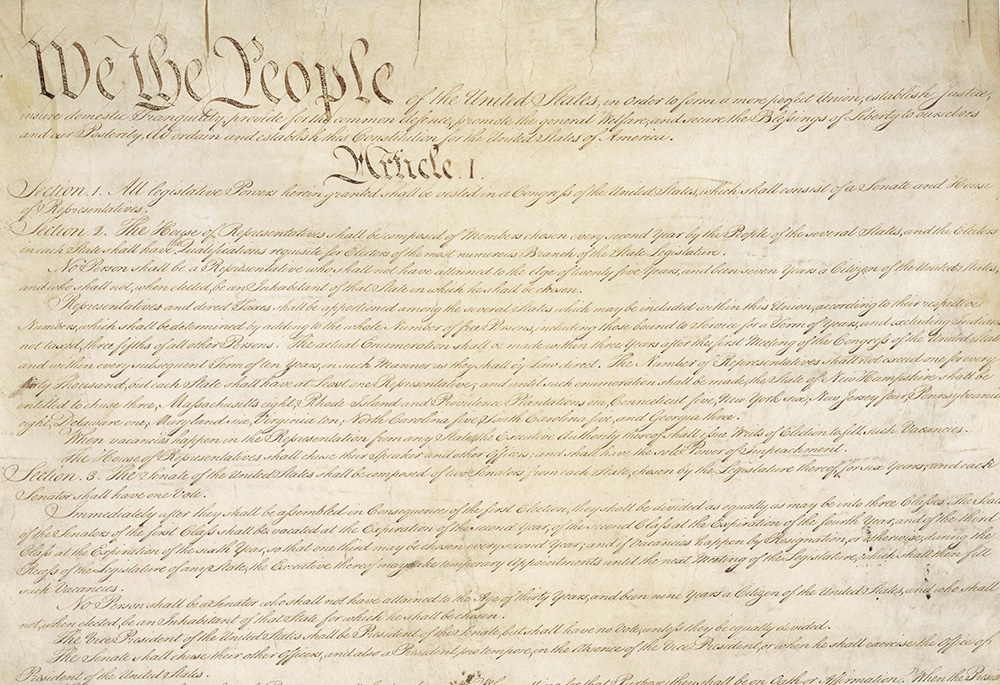 We the People of the United States, in Order to form a more perfect Union, establish Justice,
insure domestic Tranquility, provide for the common defence, promote the general Welfare, and secure the Blessings of Liberty to ourselves
and our Posterity, do ordain and establish this Constitution for the United States of America.
Article. I.
Section. 1. All legislative Powers herein granted shall be vested in a Congress of the United States, which shall consist of a Senate and House
of Representatives.
Section. 2. The House of Representatives shall be composed of Members chosen every second Year by the People of the several States, and the Electors
in each State shall have the Qualifications requisite for Electors of the most numerous Branch of the State Legislature.
No Person shall be a Representative who shall not have attained to the Age of twenty five Years, and been seven Years a Citizen of the United States,
and who shall not, when elected, be an Inhabitant of that State in which he shall be chosen.
Representatives and direct Taxes shall be apportioned among the several States which may be included within this Union, according to their respective
Numbers, which shall be determined by adding to the whole Number of free Persons, including those bound to Service for a Term of Years, and excluding Indians
not taxed, three fifths of all other Persons. The actual Enumeration shall be made within three Years after the first Meeting of the Congress of the United States,
and within every subsequent Term of ten Years, in such Manner as they shall by Law direct. The Number of Representatives shall not exceed one for every
thirty Thousand, but each State shall have at Least one Representative; and until such enumeration shall be made, the State of New Hampshire shall be
entitled to chuse three, Massachusetts eight, Rhode Island and Providence Plantations one, Connecticut five, New York six, New Jersey four, Pennsylvania
eight, Delaware one, Maryland six, Virginia ten, North Carolina five, South Carolina five, and Georgia three.
When vacancies happen in the Representation from any State, the Executive Authority thereof shall issue Writs of Election to fill such Vacancies.
The House of Representatives shall chuse their Speaker and other Officers; and shall have the sole Power of Impeachment.
Section. 3. The Senate of the United States shall be composed of two Senators from each State, chosen by the Legislature thereof, for six Years; and each
Senator shall have one Vote.
Immediately after they shall be assembled in Consequence of the first Election, they shall be divided as equally as may be into three Classes. The Seats
of the Senators of the first Class shall be vacated at the Expiration of the second Year, of the second Class at the Expiration of the fourth Year, and of the third
Class at the Expiration of the sixth Year, so that one third may be chosen every second Year; and if Vacancies happen by Resignation, or otherwise, during the
Recess of the Legislature of any State, the Executive thereof may make temporary Appointments until the next Meeting of the Legislature, which shall then fill
such Vacancies.
No Person shall be a Senator who shall not have attained to the Age of thirty Years, and been nine Years a Citizen of the United States, and who shall
not, when elected, be an Inhabitant of that State for which he shall be chosen.
The Vice President of the United States shall be President of the Senate, but shall have no Vote, unless they be equally divided.
The Senate shall chuse their other Officers, and also a President pro tempore, in the Absence of the Vice President, or when he shall exercise the Office of
President of the United States.
for that Purpose, they shall be on Oath or Affirmation. When the President